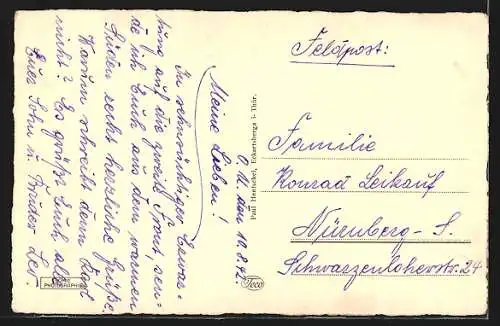 O.U. den 10.8.42.
Meine Lieben!
In sehnsüchtiger Erwar-
tung auf die zweite Front, sen-
de ich Euch aus dem warmen
Süden recht herzliche Grüße.
Warum schreibt denn Karl
nicht? Es grüßt Euch alle
Euer Sohn u. Bruder Leo.
ECHTE
PHOTOGRAPHIE
Paul Heutschel, Eckartsberga i. Thür.
Feldpost:
Familie
Konrad Leikauf
Nürnberg-S.
Schwarzenloherstr. 24